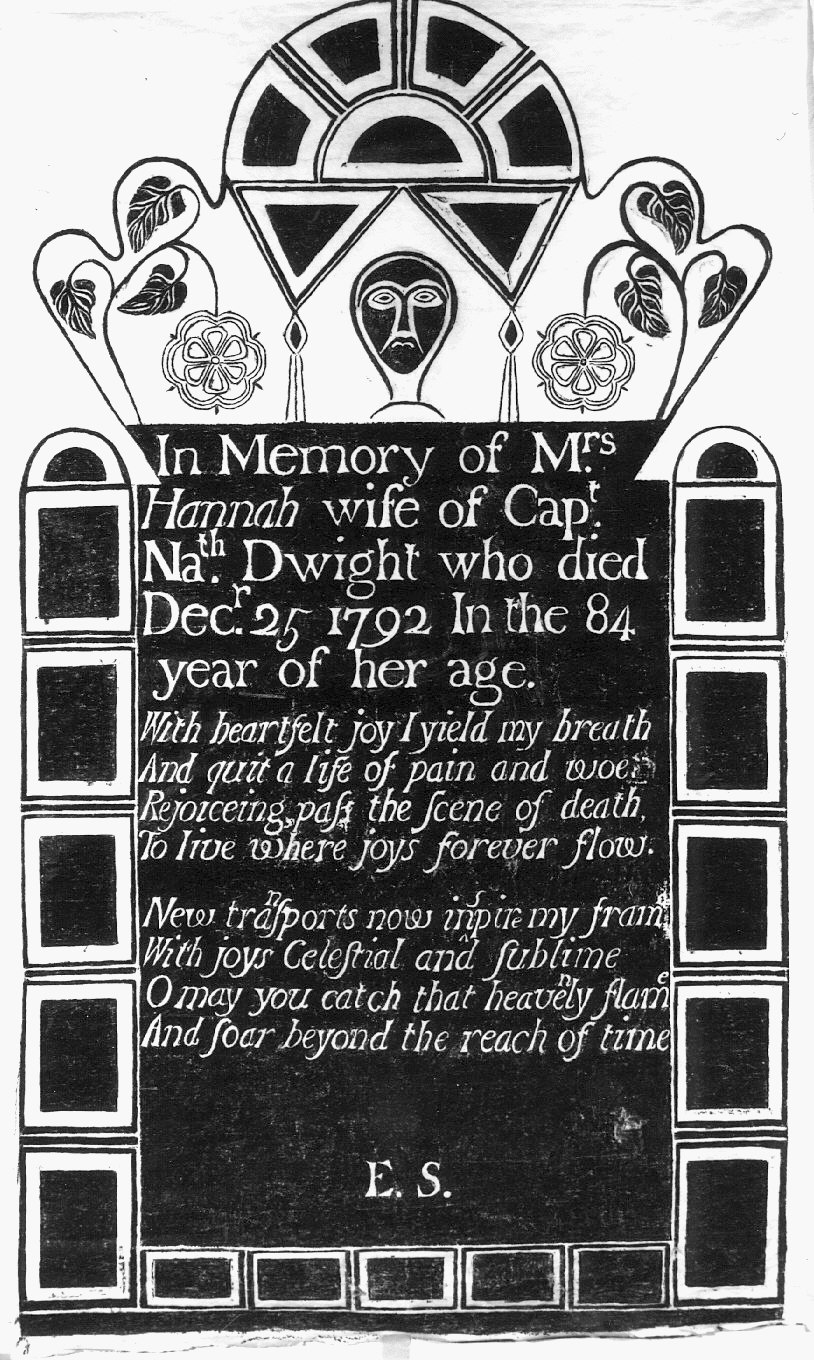 In Memory of Mrs.
Hannah wife of Capt.
Nath. Dwight who died
Decr. 25 1792 In the 84
year of her age.
With heartfelt joy I yield my breath
And quit a life of pain and woe
Rejoiceing, paſs the ſcene of death,
To live where joys forever flow.
New tranſports now inspire my frame
With joys Celeſtial and ſublime
O may you catch that heavenly flame
And ſoar beyond the reach of time
E. S.